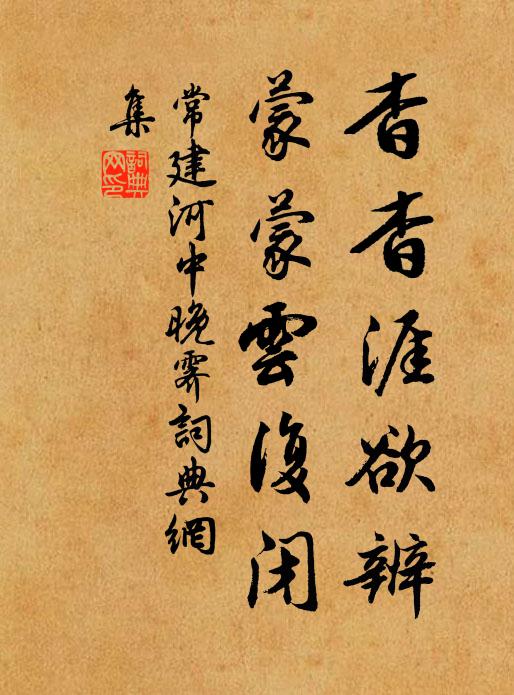 杳杳涯欲辨
蒙蒙雲復閉
常建河中晚霽詞典網
集
詞典
网印